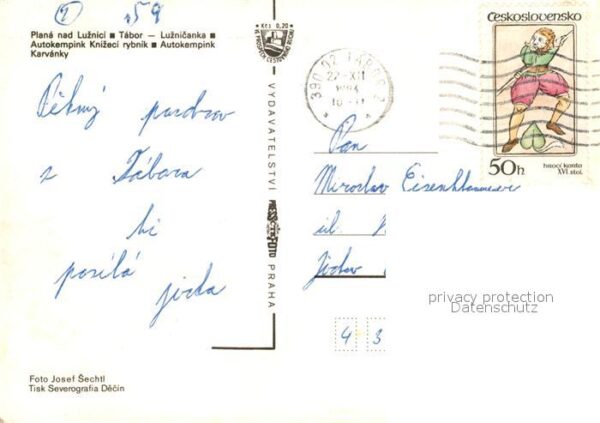 2 59
Planá nad Lužnicí ■ Tábor — Lužničanka ■
Autokempink Knížecí rybník ■ Autokempink
Karvánky
Pěkný pozdrav
z Tábora
ti
posílá
jirka
Foto Josef Šechtl
Tisk Severografia Děčín
Kčs 0,20
VE PROSPĚCH CESTOVNÍHO RUCHU
VYDAVATELSTVÍ
PRESSFOTO
PRAHA
390 02 TÁBOR 2
22-XII
Československo
50h
hrací karta
XVI. stol.
Pan
Miroslav
ul.
4 3
privacy protection
Datenschutz